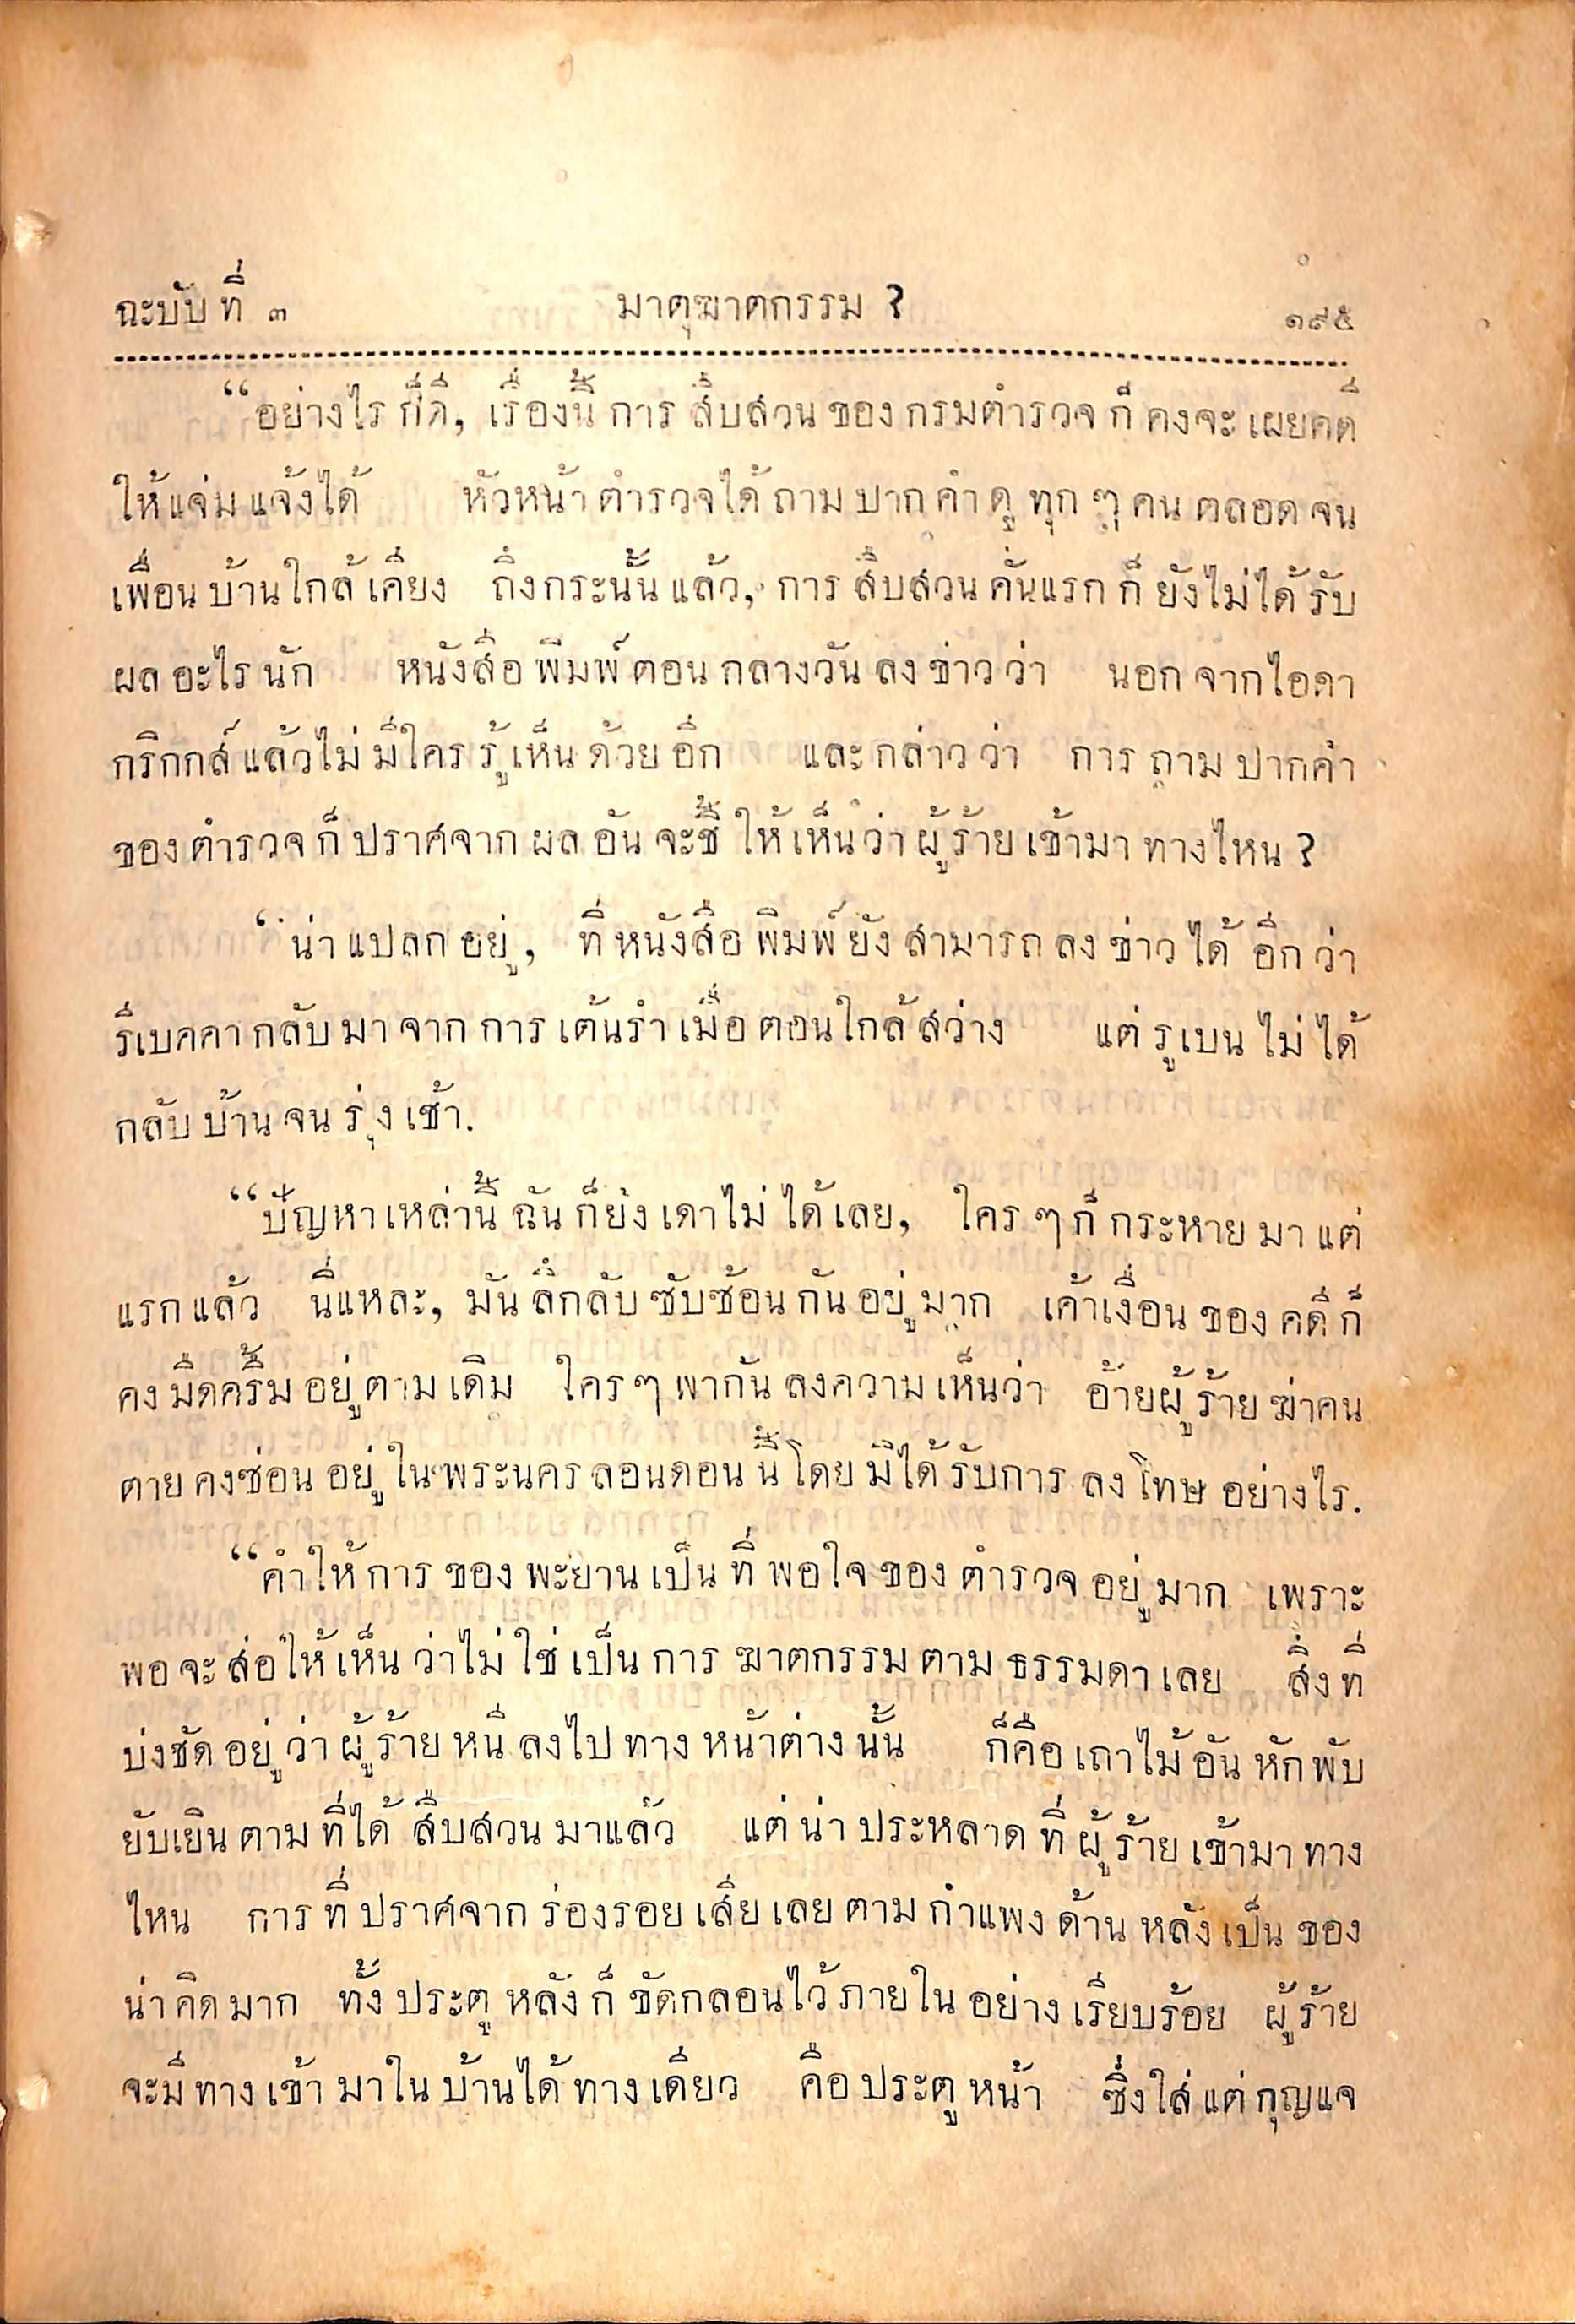 ฉะบับที่ ๓ มาตุฆาตกรรม ? ๑๙๕
“อย่างไรก็ดี, เรื่องนี้การสืบสวนของกรมตำรวจก็คงจะเผยคดี
ให้แจ่มแจ้งได้ หัวหน้าตำรวจได้ถามปากคำดูทุก ๆ คนตลอดจน
เพื่อนบ้านใกล้เคียง ถึงกระนั้นแล้ว, การสืบสวนคั่นแรกก็ยังไม่ได้รับ
ผลอะไรนัก หนังสือพิมพ์ตอนกลางวันลงข่าวว่า นอกจากไอดา
กริกกส์แล้วไม่มีใครรู้เห็นด้วยอีก และกล่าวว่า การถามปากคำ
ของตำรวจก็ปราศจากผลอันจะชี้ให้เห็นว่าผู้ร้ายเข้ามาทางไหน ?
“น่าแปลกอยู่, ที่หนังสือพิมพ์ยังสามารถลงข่าวได้อีกว่า
ริเบคคากลับมาจากการเต้นรำเมื่อตอนใกล้สว่าง แต่รูเบนไม่ได้
กลับบ้านจนรุ่งเช้า.
“ปัญหาเหล่านี้ฉันก็ยังเดาไม่ได้เลย, ใคร ๆ ก็กระหายมาแต่
แรกแล้ว นี่แหละ, มันลึกลับซับซ้อนกันอยู่มาก เค้าเงื่อนของคดีก็
คงมืดครึ้มอยู่ตามเดิม ใคร ๆ พากันลงความเห็นว่า อ้ายผู้ร้ายฆ่าคน
ตายคงซ่อนอยู่ในพระนครลอนดอนนี้โดยมิได้รับการลงโทษอย่างไร.
“คำให้การของพะยานเป็นที่พอใจของตำรวจอยู่มาก เพราะ
พอจะส่อให้เห็นว่าไม่ใช่เป็นการฆาตกรรมตามธรรมดาเลย สิ่งที่
บ่งชัดอยู่ว่าผู้ร้ายหนีลงไปทางหน้าต่างนั้น ก็คือเถาไม้อันหักพับ
ยับเยินตามที่ได้สืบสวนมาแล้ว แต่น่าประหลาดที่ผู้ร้ายเข้ามาทาง
ไหน การที่ปราศจากร่องรอยเสียเลยตามกำแพงด้านหลังเป็นของ
น่าคิดมาก ทั้งประตูหลังก็ขัดกลอนไว้ภายในอย่างเรียบร้อย ผู้ร้าย
จะมีทางเข้ามาในบ้านได้ทางเดียว คือประตูหน้า ซึ่งใส่แต่กุญแจ